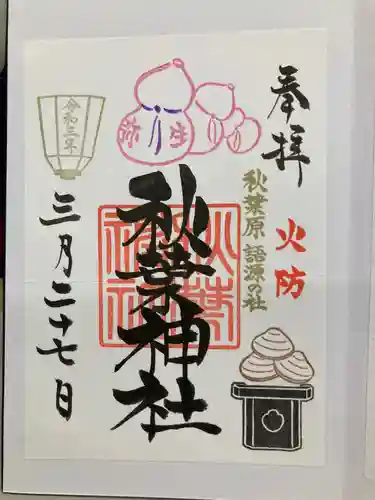 奉拝
火防
秋葉原 語源の社
弥生
秋葉神社
秋葉神社
令和三年
三月二十七日